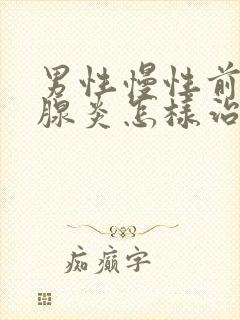 男性慢性前
腺炎怎様治
痴癫字